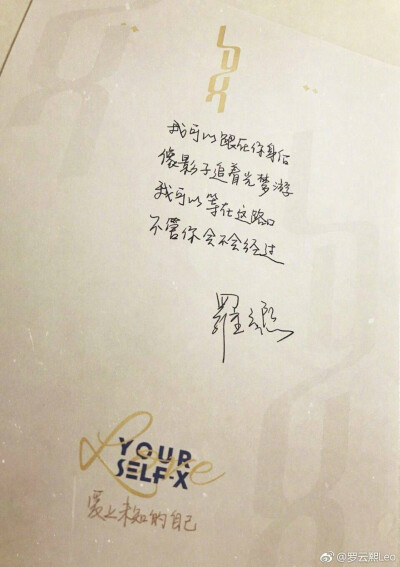 LYX
我可以跟在你身后
像影子追着光梦游
我可以等在这路口
不管你会不会经过
罗云熙
Love
YOUR
SELF-X
爱上未知的自己
@罗云熙Leo